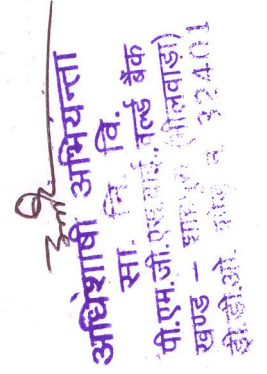 अधिशाषी अभियन्ता
सा. नि. वि.
पी.एम.जी.एस.वाई., वर्ल्ड बैंक
खण्ड – (भीलवाड़ा)
डी.डी.ओ. कोड नं. 32401